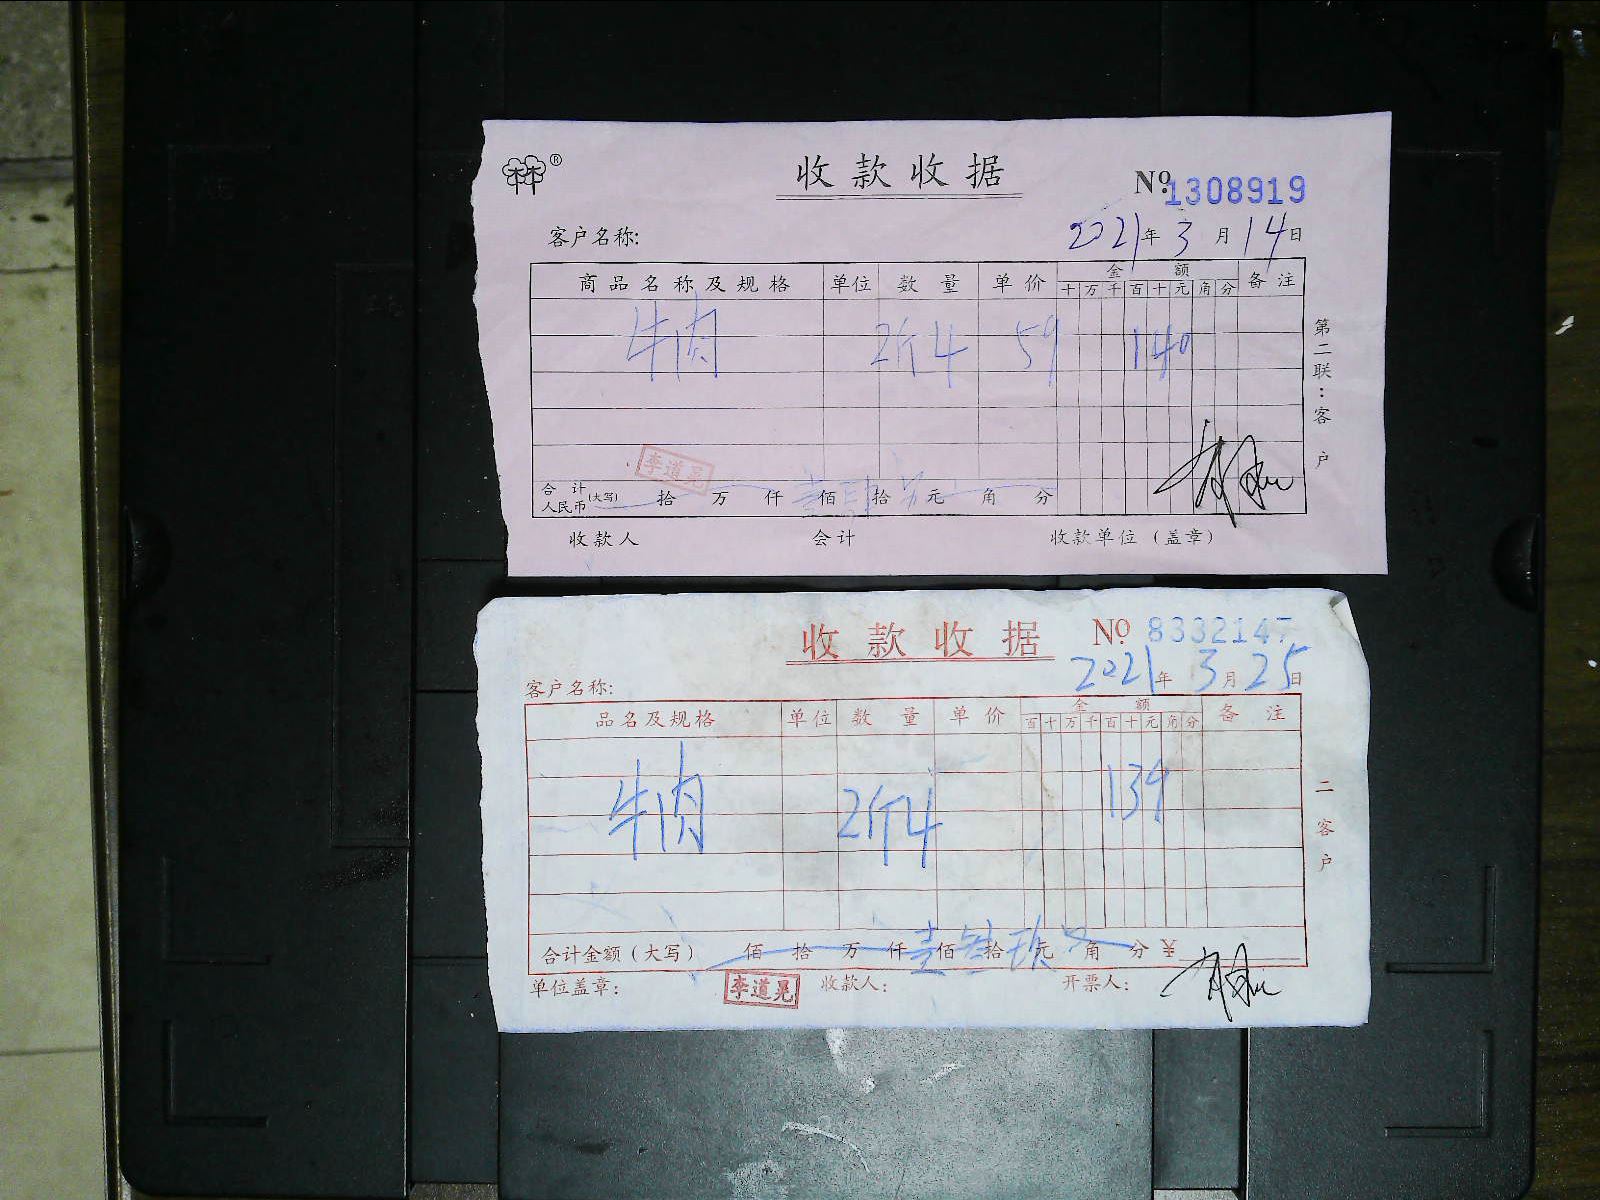 林®
收款收据
№ 1308919
客户名称:
2021年3月14日
商品名称及规格 单位 数量 单价 金额 备注
十万千百十元角分
牛肉 2斤4 59 140
李道晃
合计人民币(大写) 拾 万 仟 壹佰肆拾 元 角 分
收款人 会计 收款单位(盖章)
第二联:客户
收款收据
№ 8332147
2021年3月25日
客户名称:
品名及规格 单位 数量 单价 金额 备注
百十万千百十元角分
牛肉 2斤4 139
合计金额(大写) 佰 拾 万 仟 壹佰叁拾玖元 角 分 ¥
单位盖章: 李道晃 收款人: 开票人:
二客户